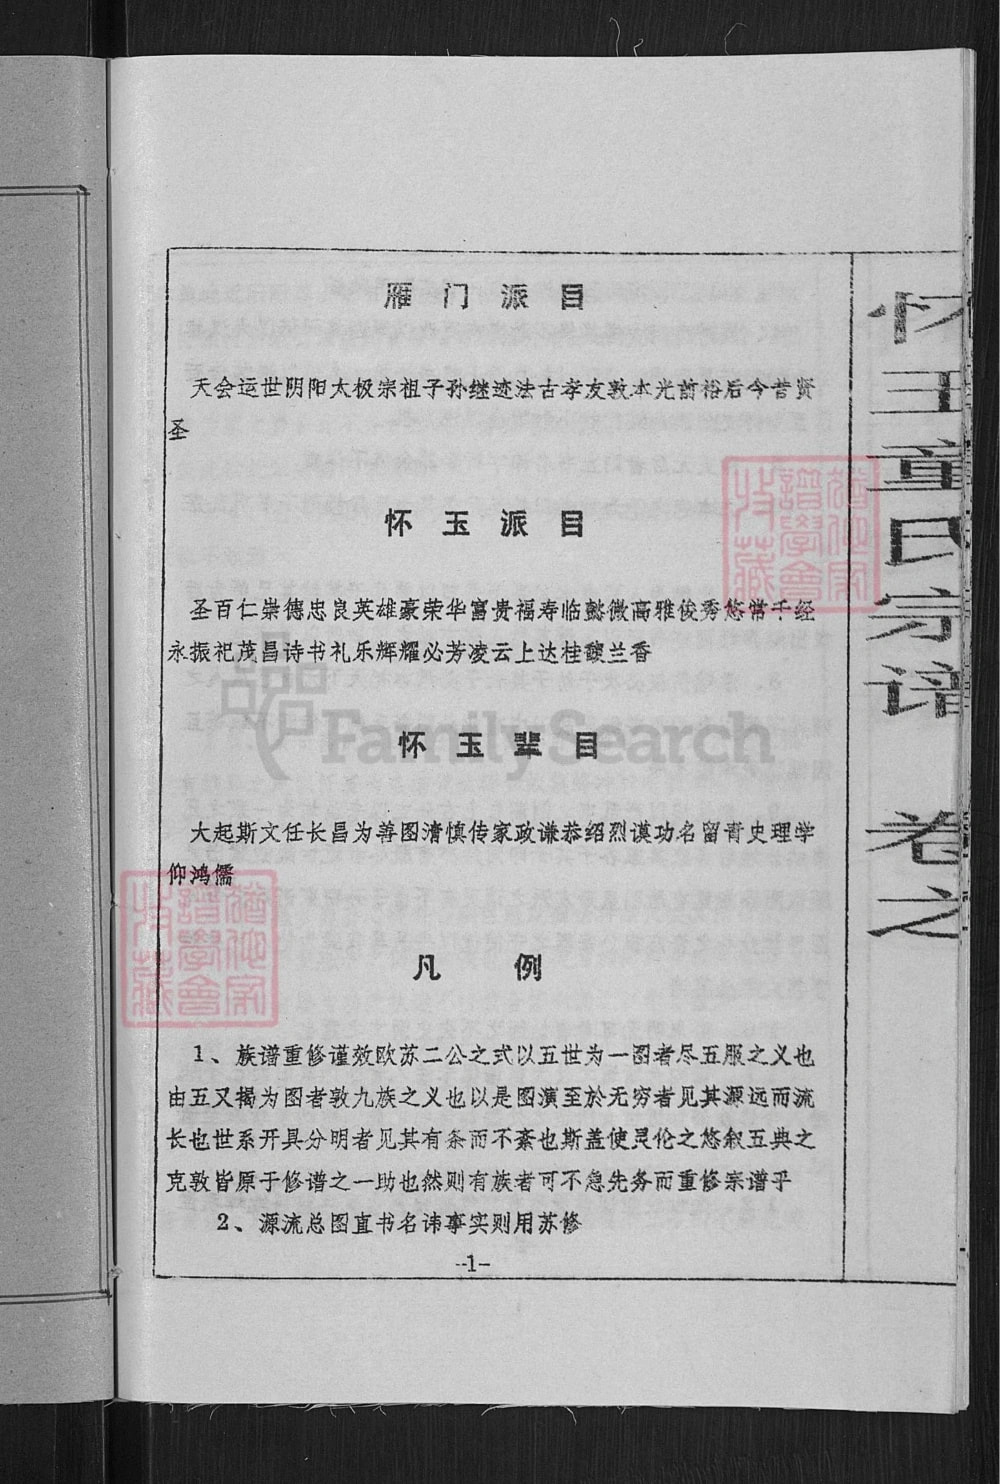 雁门派目
天会运世阴阳太极宗祖子孙继迹法古孝友敦本光前裕后今昔贤
圣
怀玉派目
圣百仁崇德忠良英雄豪荣华富贵福寿临懿微高雅俊秀悠常千经
永振祀茂昌诗书礼乐辉耀必芳凌云上达桂馥兰香
怀玉辈目
大起斯文任长昌为善图清慎传家政谦恭绍烈谟功名留青史理学
仰鸿儒
凡例
1、族谱重修谨效欧苏二公之式以五世为一图者尽五服之义也
由五又揭为图者敦九族之义也以是图演至於无穷者见其源远而流
长也世系开具分明者见其有条而不紊也斯盖使灵伦之悠叙五典之
克敦皆原于修谱之一助也然则有族者可不急先务而重修宗谱乎
2、源流总图直书名讳事实则用苏修
--1--
怀玉童氏宗谱 卷之
FamilySearch
谱学会
收藏
谱学会
收藏